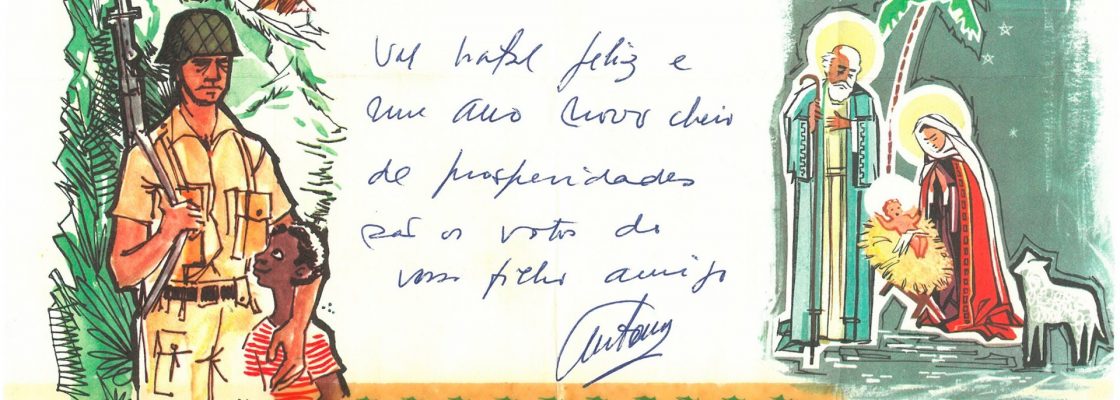 Um natal feliz e
um ano novo cheio
de prosperidades
são os votos do
vosso filho amigo
Antony